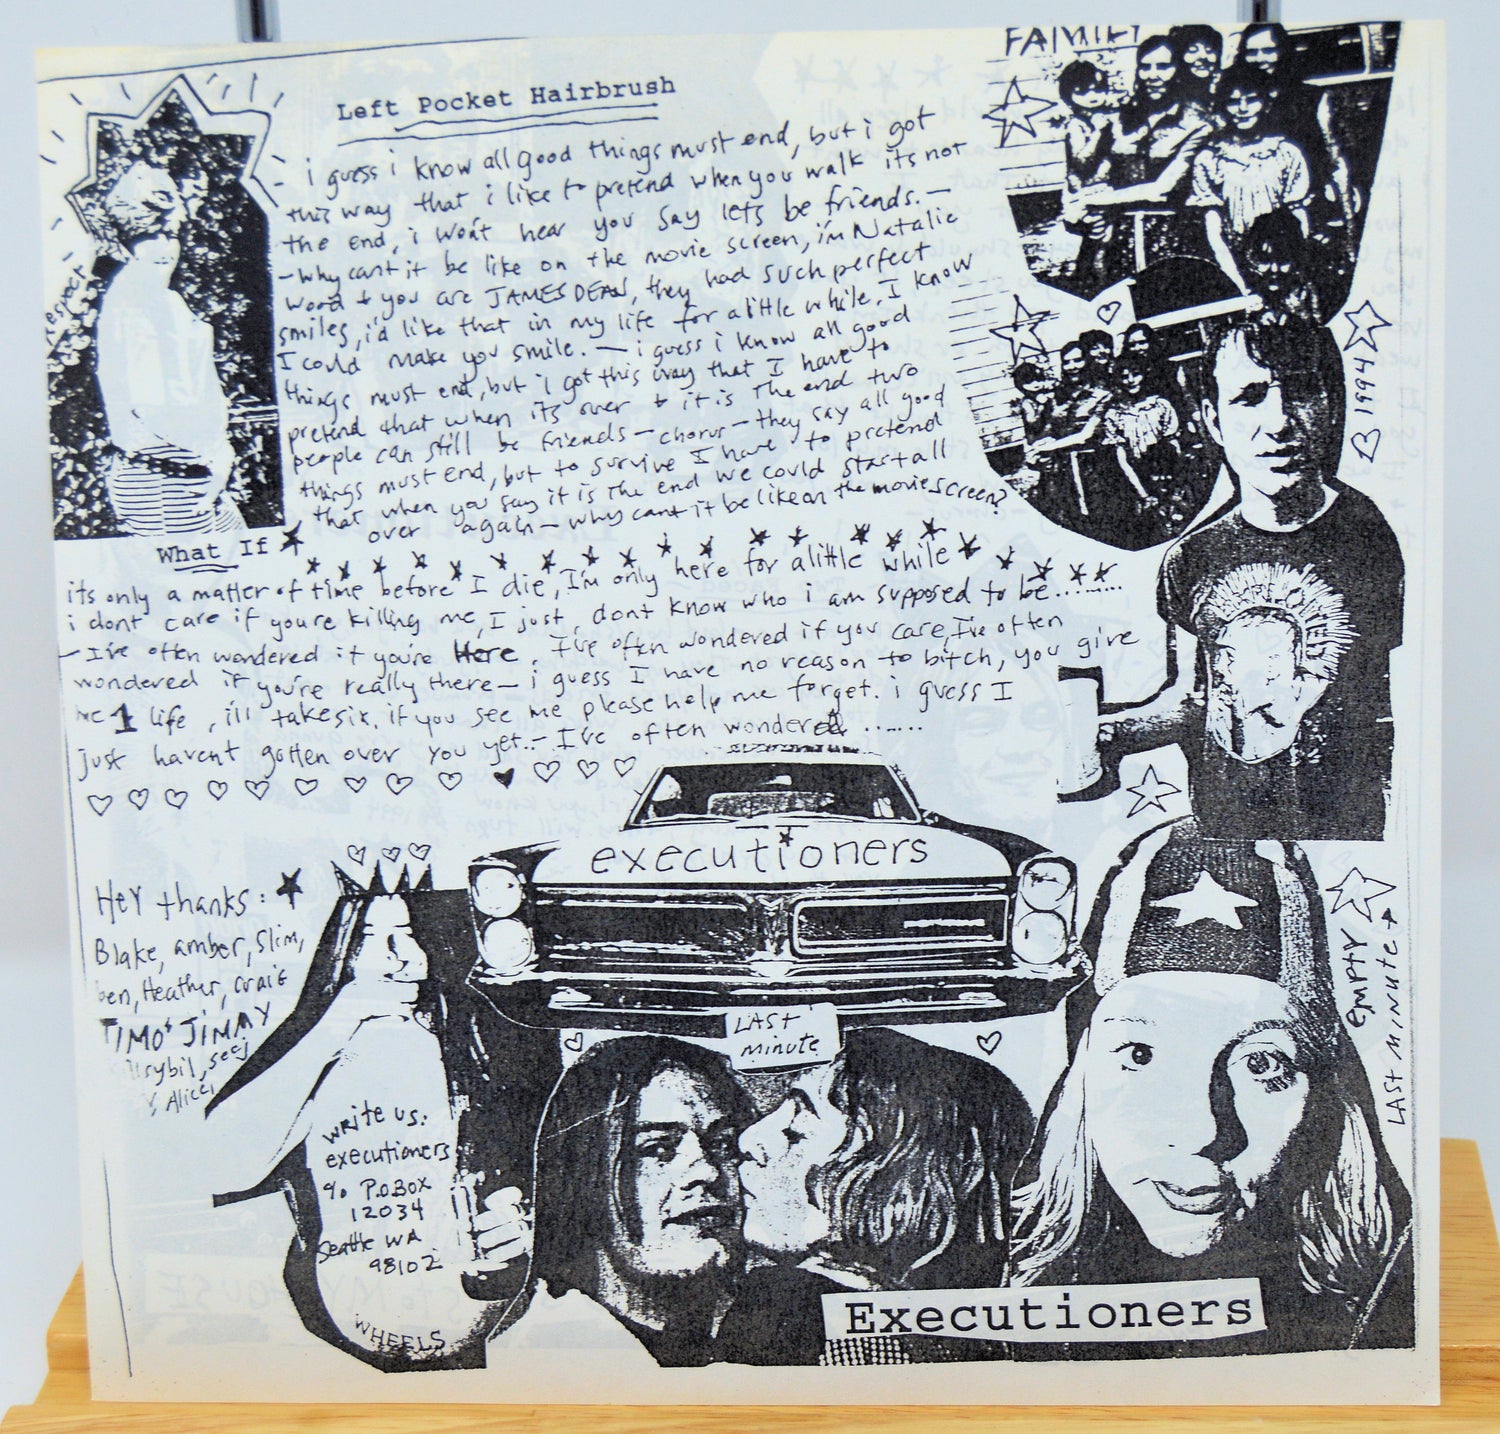 FAMILY
Left Pocket Hairbrush
i guess i know all good things must end, but i got
this way that i like to pretend when you walk its not
the end, i wont hear you say lets be friends. —
— Why cant it be like on the movie screen, i'm Natalie
Wood + you are JAMES DEAN, they had such perfect
smiles, i'd like that in my life for a little while, I know
I could make you smile. — i guess i know all good
things must end, but i got this way that I have to
pretend that when its over + it is The end two
people can still be friends — chorus — they say all good
things must end, but to survive I have to pretend
that when you say it is The end we could start all
over again — why cant it be like on the movie screen?
respect
1994
What If
its only a matter of time before I die, I'm only here for a little while
i dont care if youre killing me, I just dont know who i am supposed to be........
— I've often wondered if you're Here, I've often wondered if you care, I've often
wondered if you're really there — i guess I have no reason to bitch, you give
me 1 life, i'll take six, if you see me please help me forget. i guess I
just havent gotten over you yet.. — I've often wondered ......
executioners
Hey thanks:
Blake, amber, Slim,
ben, Heather, craig
TIMO + JIMMY
sybil,
Alice
EMPTY
LAST MINUTE
LAST
minute
write us.
executioners
c/o P.O.BOX
12034
Seattle WA
98102
WHEELS
Executioners